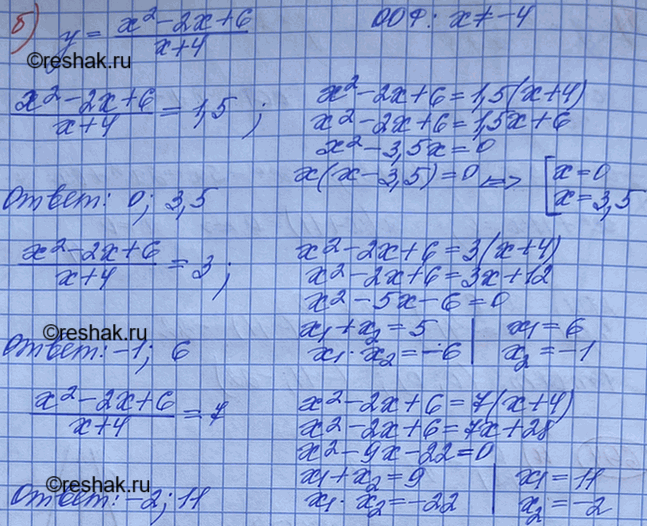 б) y = (x² - 2x + 6)/(x + 4)    ООФ: x ≠ -4
©reshak.ru
(x² - 2x + 6)/(x + 4) = 1,5 ;    x² - 2x + 6 = 1,5(x + 4)
x² - 2x + 6 = 1,5x + 6
x² - 3,5x = 0
x(x - 3,5) = 0 => [ x = 0
x = 3,5
Ответ: 0; 3,5
(x² - 2x + 6)/(x + 4) = 3 ;    x² - 2x + 6 = 3(x + 4)
x² - 2x + 6 = 3x + 12
x² - 5x - 6 = 0
©reshak.ru
x₁ + x₂ = 5 | x₁ = 6
x₁ · x₂ = -6 | x₂ = -1
Ответ: -1; 6
(x² - 2x + 6)/(x + 4) = 7    x² - 2x + 6 = 7(x + 4)
x² - 2x + 6 = 7x + 28
x² - 9x - 22 = 0
©reshak.ru
x₁ + x₂ = 9 | x₁ = 11
x₁ · x₂ = -22 | x₂ = -2
Ответ: -2; 11